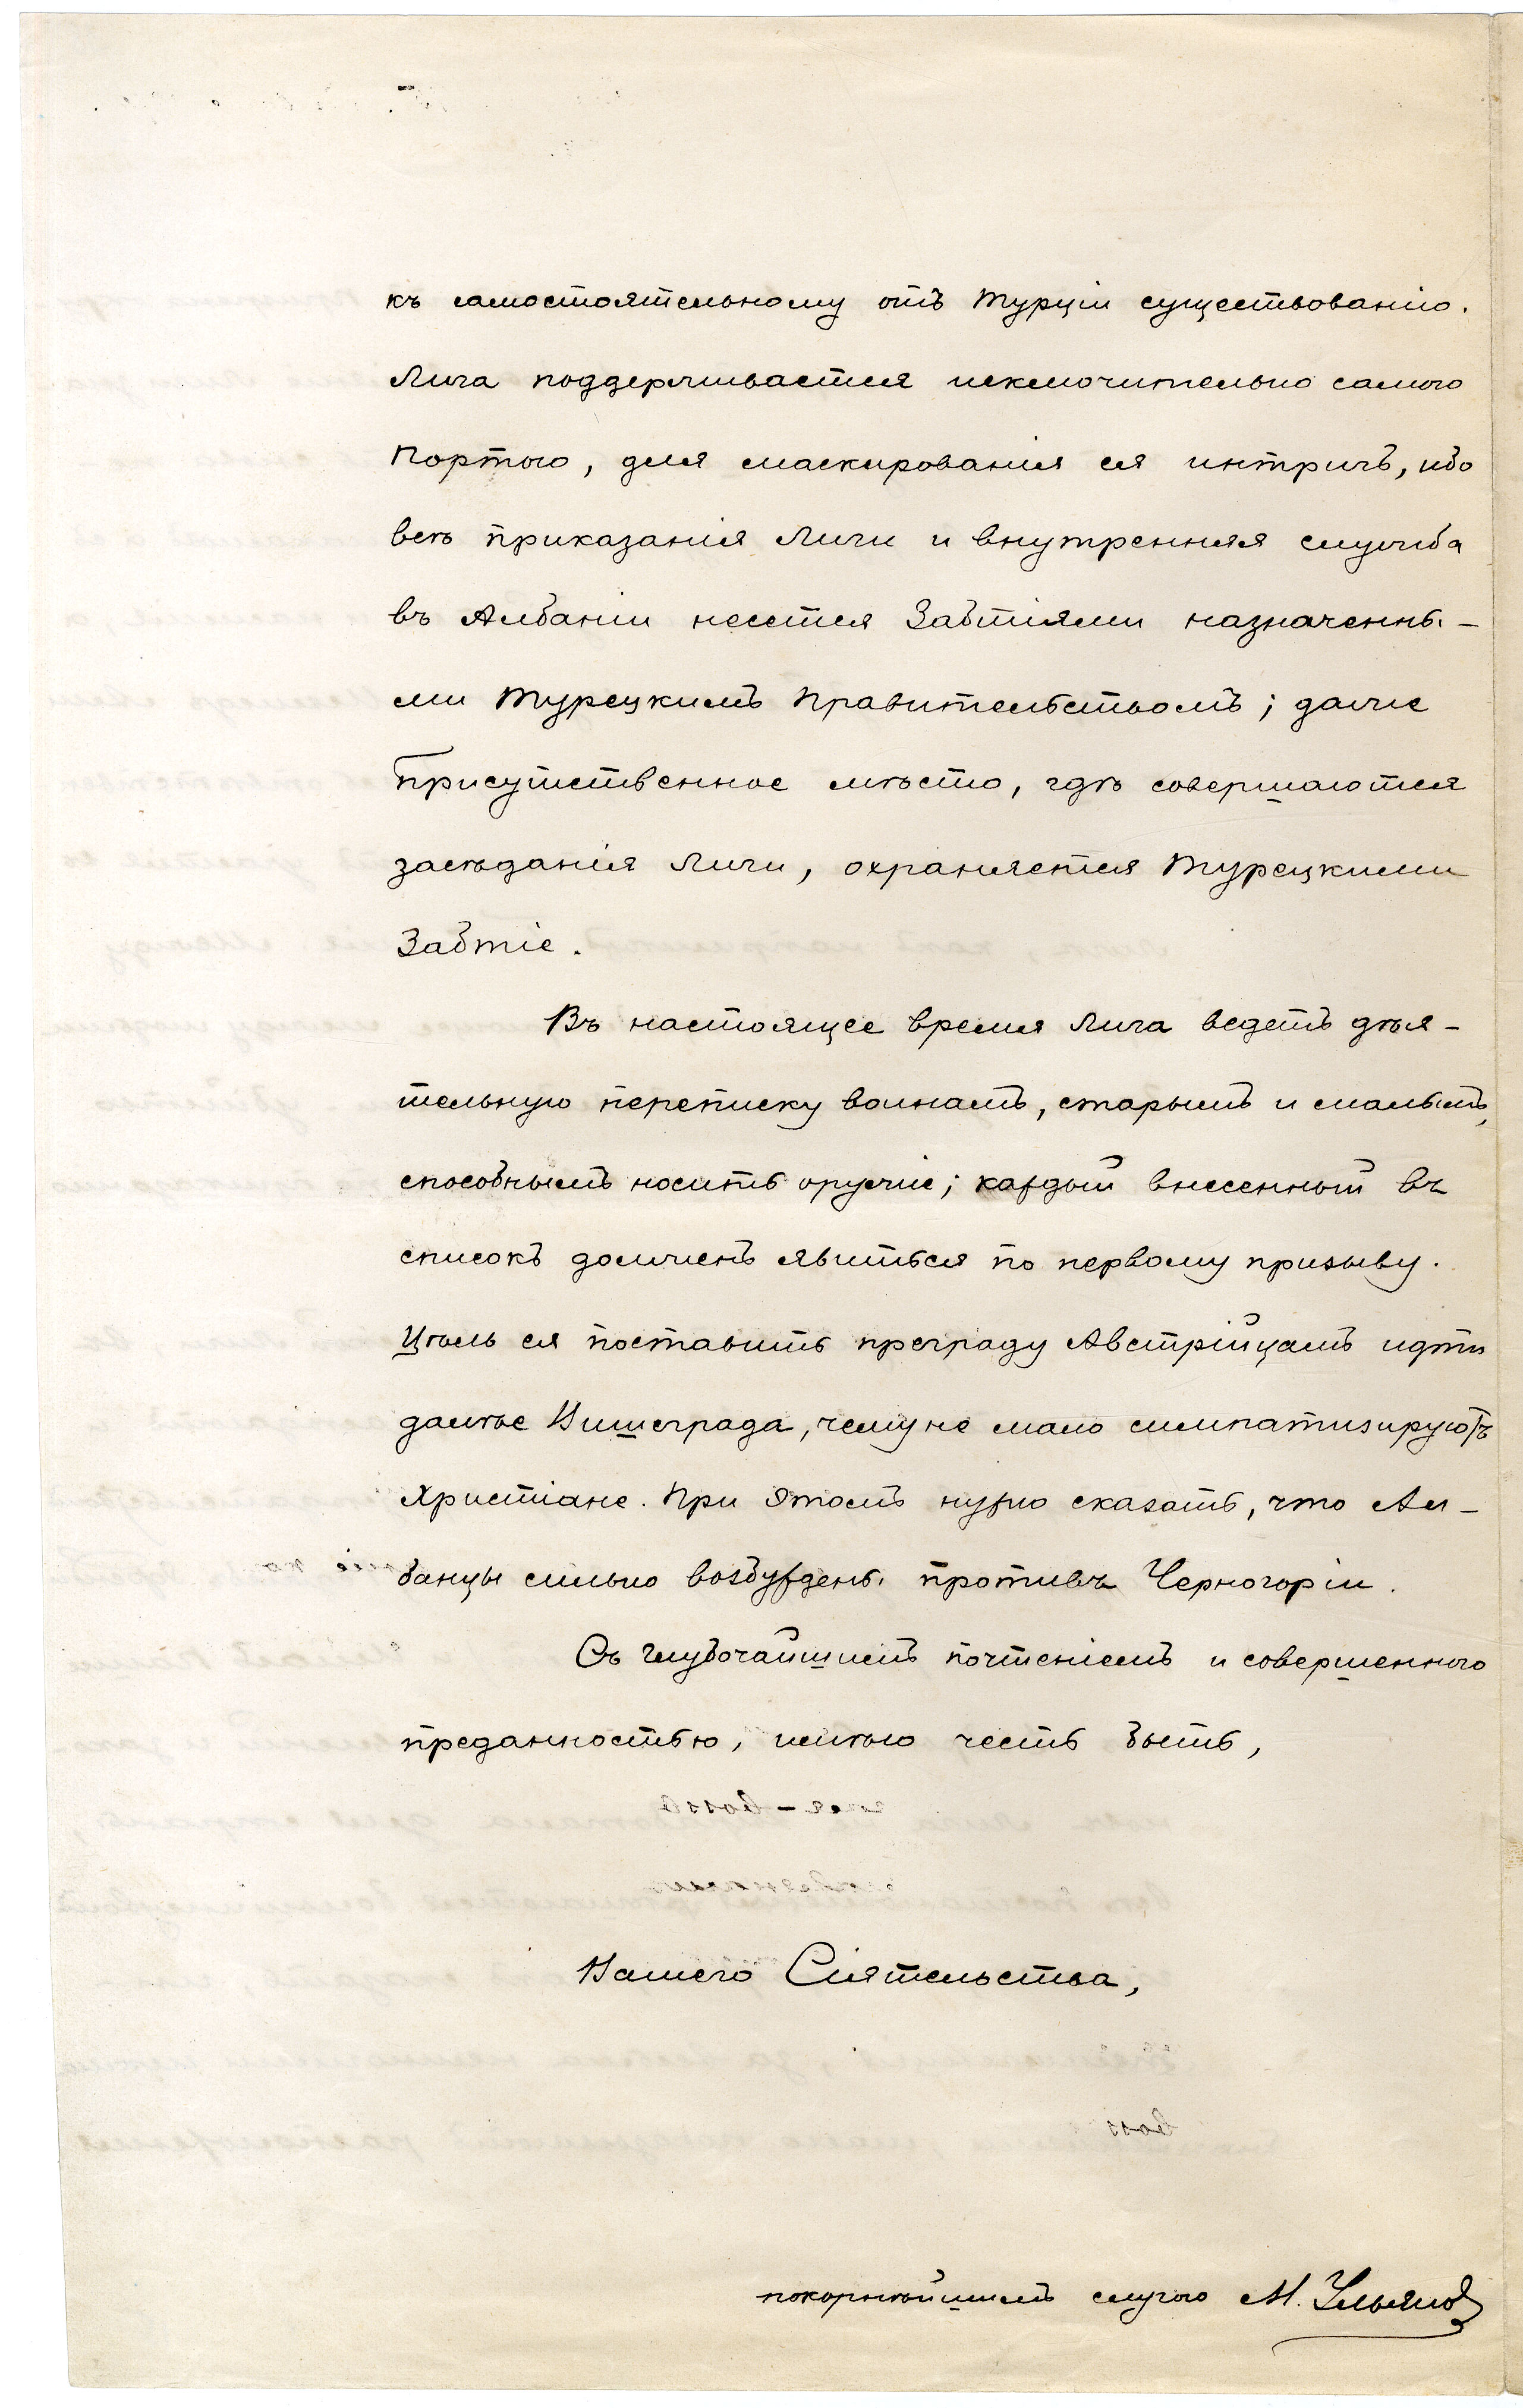 къ самостоятельному отъ Турціи существованію.
Лига поддерживается исключительно самою
Портою, для маскированія ея интригъ, ибо
всѣ приказанія Лиги и внутренняя служба
въ Албаніи несется Забтіями назначенны-
ми Турецкимъ Правительствомъ; даже
присутственное мѣсто, гдѣ совершаются
засѣданія Лиги, охраняется Турецкими
Забтіе.
Въ настоящее время Лига ведетъ дѣя-
тельную переписку воинамъ, старымъ и малымъ,
способнымъ носить оружіе; каждый внесенный въ
списокъ долженъ явиться по первому призыву.
Цѣль ея поставить преграду Австрійцамъ идти
далѣе Вишеграда, чему не мало симпатизируютъ
Христіане. При этомъ нужно сказать, что Ал-
банцы сильно возбуждены противъ Черногоріи.
Съ глубочайшимъ почтеніемъ и совершенною
преданностью, имѣю честь быть,
Вашего Сіятельства,
покорнѣйшимъ слугою М. Ульянов